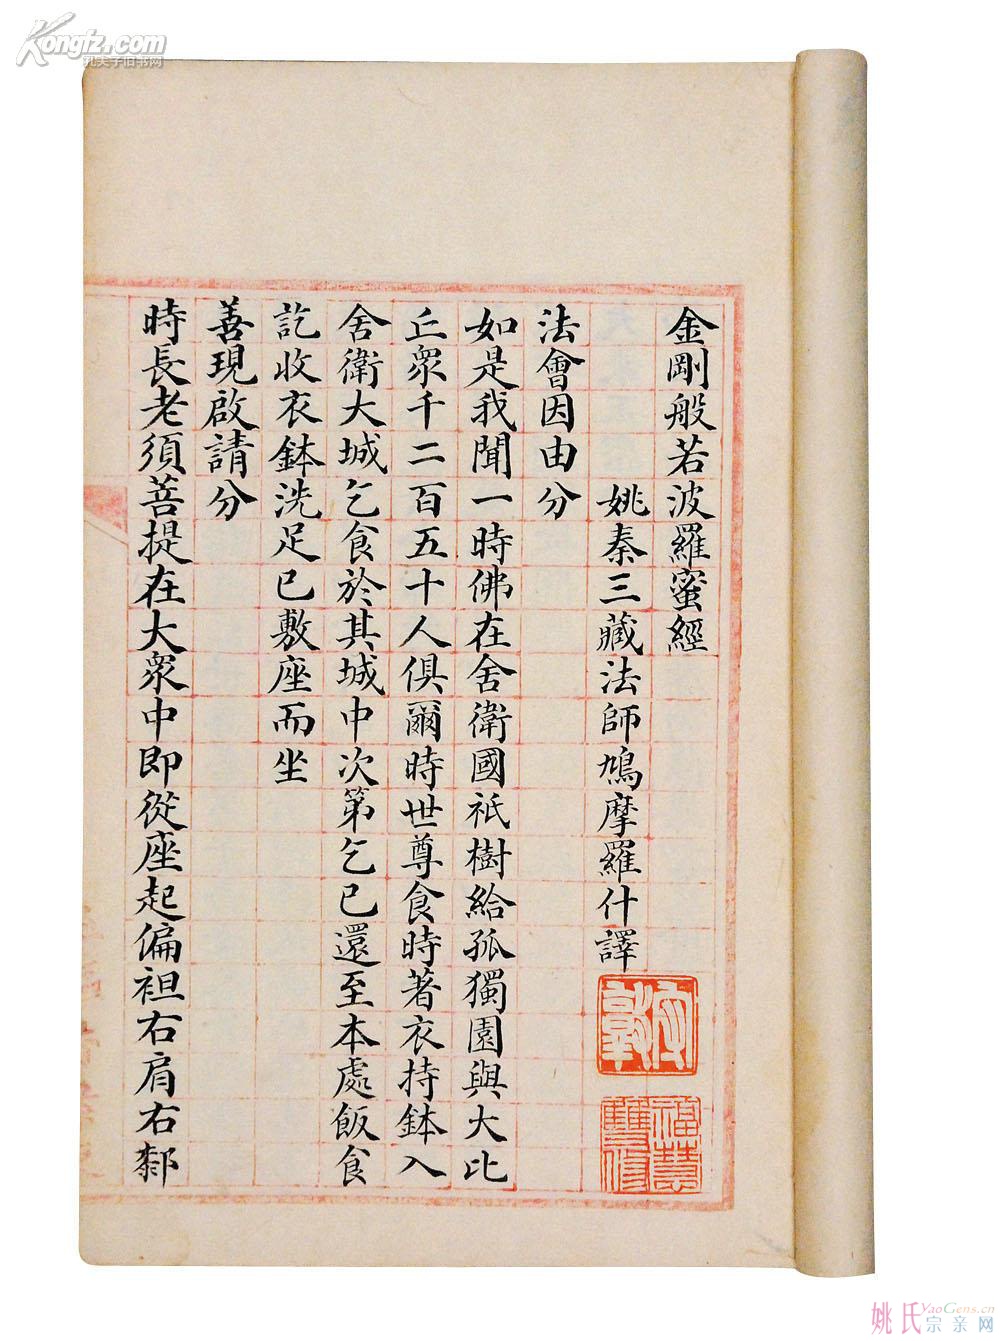 金剛般若波羅蜜經
姚秦三藏法師鳩摩羅什譯
法會因由分
如是我聞一時佛在舍衛國祇樹給孤獨園與大比
丘眾千二百五十人俱爾時世尊食時著衣持鉢入
舍衛大城乞食於其城中次第乞已還至本處飯食
訖收衣鉢洗足已敷座而坐
善現啟請分
時長老須菩提在大眾中即從座起偏袒右肩右厀
福慧雙修
Kongfz.com
孔夫子旧书网
姚氏宗亲网
YaoGens.cn